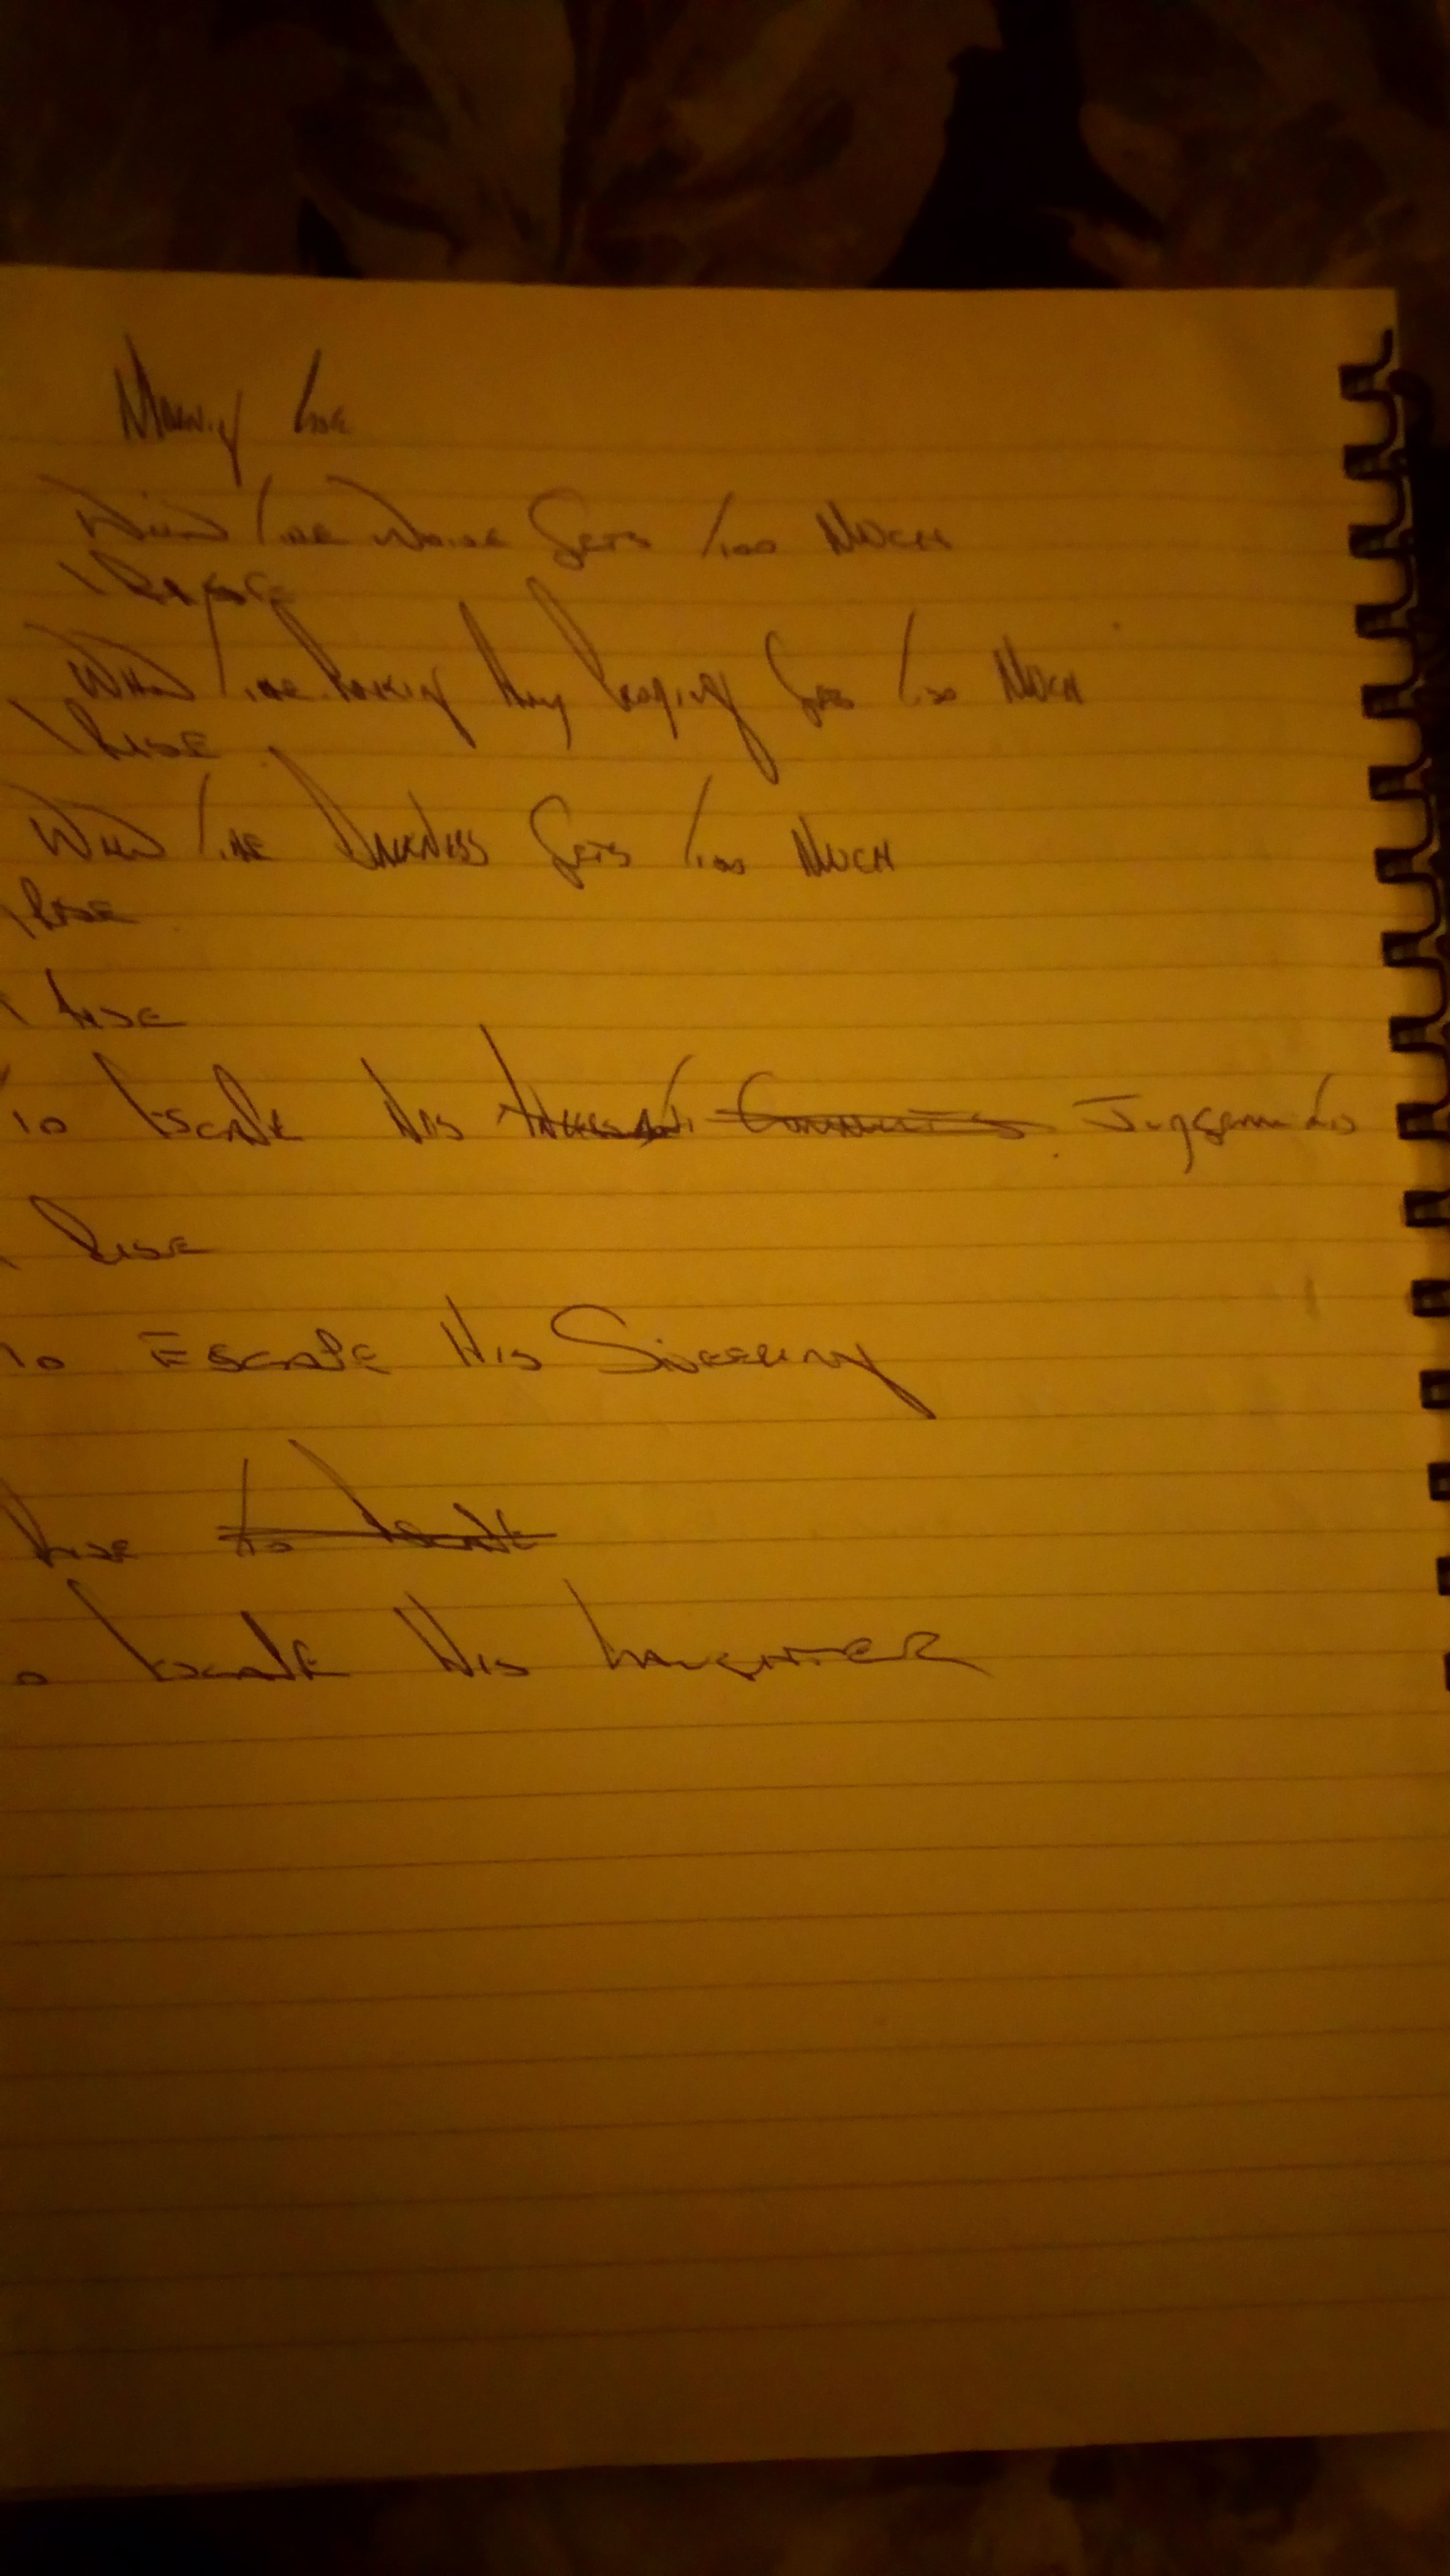 When The Noise Gets Too Much
I Rise
When The Poking And Proding Gets Too Much
I Rise
When The Darkness Gets Too Much
I Rise
I Rise
To Escape His Judgements
I Rise
To Escape His Sneering
Rise to Escape
o Escape His Laughter